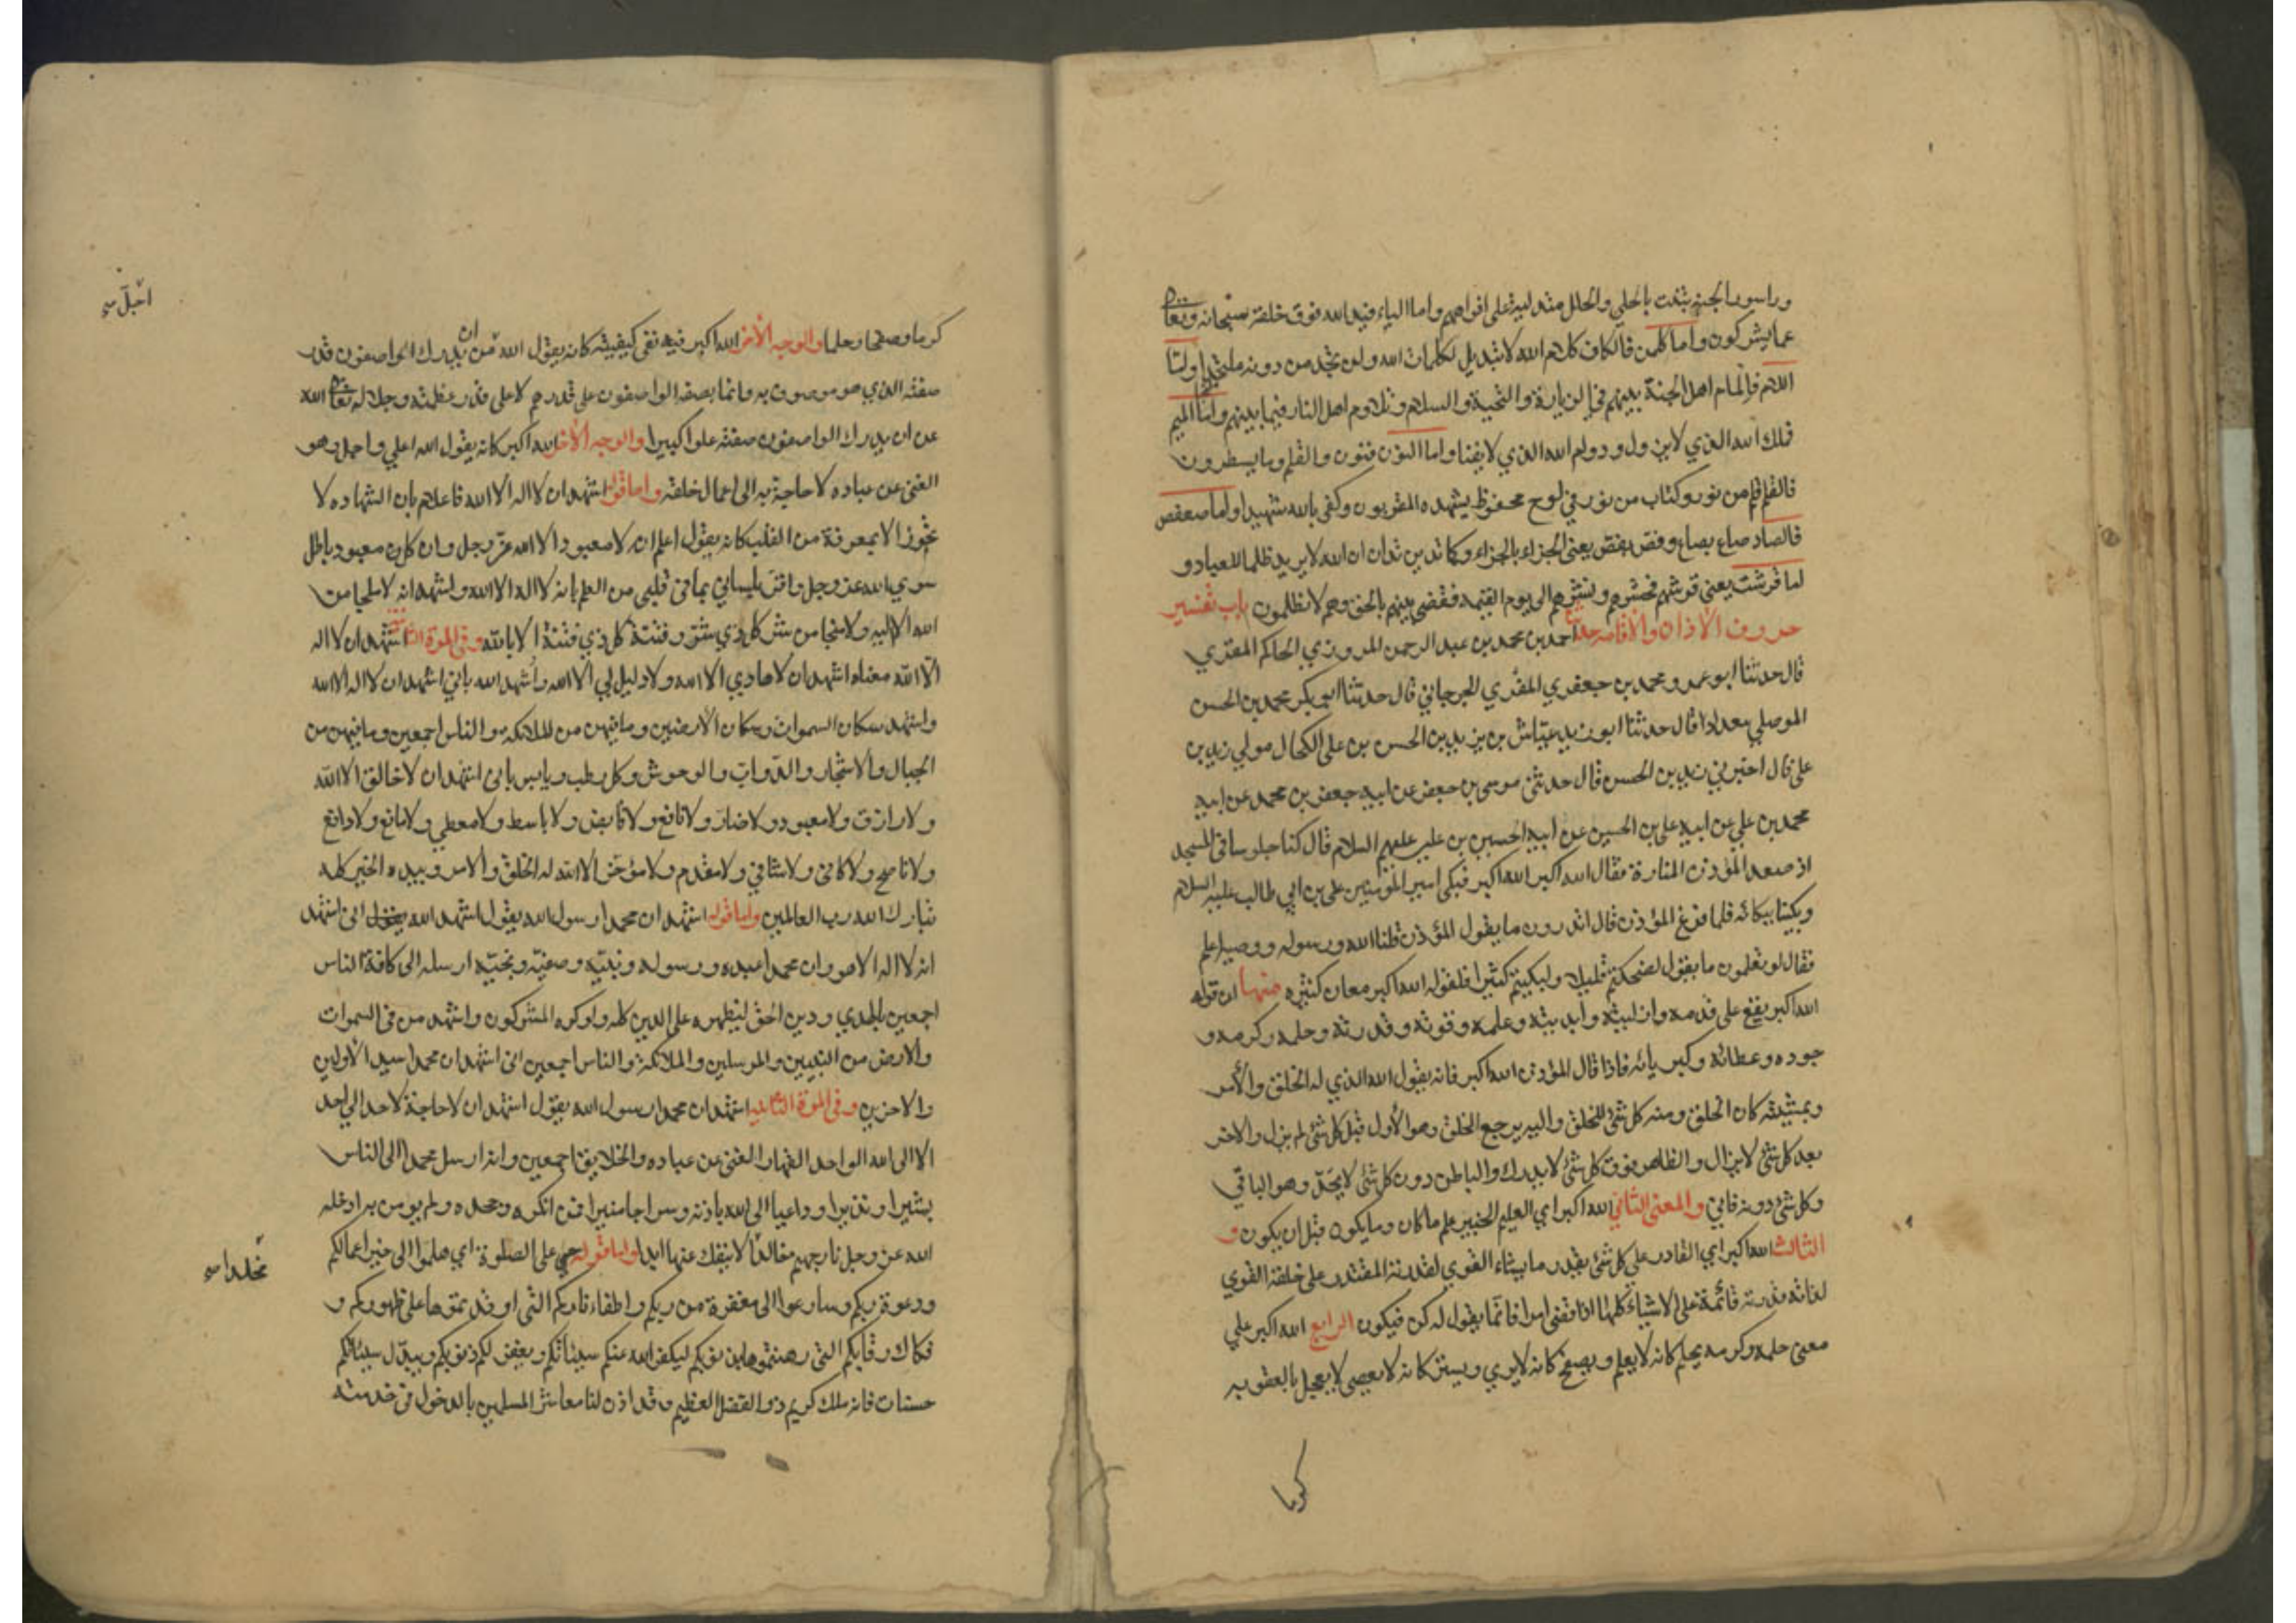 وراسور الجنة ينبت بالحلي والحلل متدلية على افواههم واما الياء فيد الله فوق خلقه سبحانه وتعالى
عما يشركون واما كلمن فالكاف كلام الله لا تبديل لكلمات الله ولن تجد من دونه ملتحدا واما
اللام فالمام اهل الجنة بينهم في الزيارة والتحية والسلام وتلاوم اهل النار فيما بينهم واما الميم
فملك الله الذي لا يزول ودوام الله الذي لا يفنا واما النون فنون والقلم وما يسطرون
فالقلم قلم من نور وكتاب من نور في لوح محفوظ يشهده المقربون وكفى بالله شهيدا واما صعفص
فالصاد صاع بصاع وفص بفص يعني الجزاء بالجزاء وكما تدين تدان ان الله لا يريد ظلما للعباد و
اما قرشت يعني قرشهم فحشرهم ونشرهم الى يوم القيمة فقضى بينهم بالحق وهم لا يظلمون باب تفسير
حروف الاذان والاقامه حدثنا احمد بن محمد بن عبد الرحمن المروزي الحاكم المقري
قال حدثنا ابو عمرو محمد بن جعفري المقري الجرجاني قال حدثنا ابو بكر محمد بن الحسن
الموصلي ببغداد قال حدثنا ابو زيد عياش بن يزيد بن الحسن بن علي الكحال مولي زيد بن
علي قال اخبرني زيد بن الحسن قال حدثني موسى بن جعفر عن ابيه جعفر بن محمد عن ابيه
محمد بن علي عن ابيه علي بن الحسين عن ابيه الحسين بن علي عليهم السلام قال كنا جلوسا في المسجد
اذ صعد المؤذن المنارة فقال الله اكبر الله اكبر فبكى امير المؤمنين علي بن ابي طالب عليه السلام
وبكينا ببكائه فلما فرغ المؤذن قال اتدرون ما يقول المؤذن قلنا الله ورسوله ووصيه اعلم
فقال لو تعلمون ما يقول لضحكتم قليلا ولبكيتم كثيرا فلقوله الله اكبر معان كثيره منها ان قوله
الله اكبر يقع على قدمه وازليته وابديته وعلمه وقوته وقدرته وحلمه وكرمه و
جوده وعطائه وكبريائه فاذا قال المؤذن الله اكبر فانه يقول الله الذي له الخلق والأمر
وبمشيته كان الخلق ومنه كل شئ للخلق واليه يرجع الخلق وهو الأول قبل كل شئ لم يزل والاخر
بعد كل شئ لا يزال والظاهر فوق كل شئ لا يدرك والباطن دون كل شئ لا يحد وهو الباقي
وكل شئ دونه فاني والمعنى الثاني الله اكبر اي العليم الخبير علم ما كان وما يكون قبل ان يكون و
الثالث الله اكبر اي القادر على كل شئ يقدر ما يشاء القوي لقدرته المقتدر على خلقه القوي
لذاته قدرته قائمة على الاشياء كلها اذا قضى امرا فانما يقول له كن فيكون الرابع الله اكبر علي
معنى حلمه وكرمه يحلم كانه لا يعلم ويصفح كانه لا يري ويستر كانه لا يعصي لا يعجل بالعقوبه
كرما
كرما وصفحا وحلما والوجه الآخر الله اكبر فيه نفي كيفيته كانه يقول الله اجل من ان يدرك الواصفون قدر
صفته الذي هو موصوف به وانما يصفه الواصفون على قدرهم لا على قدر عظمته وجلاله تعالى الله
عن ان يدرك الواصفون صفته علوا كبيرا والوجه الآخر الله اكبر كانه يقول الله اعلي واجل وهو
الغنى عن عباده لا حاجة به الى اعمال خلقه واما قوله اشهد ان لا اله الا الله فاعلام بان الشهاده لا
تجوز الا بمعرفة من القلب كانه يقول اعلم ان لا معبود الا الله عز وجل وان كل معبود باطل
سوي الله عز وجل واقر بلساني بما في قلبي من العلم بانه لا اله الا الله واشهد انه لا ملجا من
الله الا اليه ولا منجا من شر كل ذي شر وفتنة كل ذي فتنة الا بالله وفي المرة الثانية اشهد ان لا اله
الا الله معناه اشهد ان لا هادي الا الله ولا دليل لي الا الله واشهد الله باني اشهد ان لا اله الا الله
واشهد سكان السموات وسكان الأرضين وما فيهن من الملائكه والناس اجمعين وما فيهن من
الجبال والأشجار والدواب والوحوش وكل رطب ويابس باني اشهد ان لا خالق الا الله
ولا رازق ولا معبود ولا ضار ولا نافع ولا قابض ولا باسط ولا معطي ولا مانع ولا دافع
ولا ناصح ولا كافي ولا شافي ولا مقدم ولا مؤخر الا الله له الخلق والأمر وبيده الخير كله
تبارك الله رب العالمين واما قوله اشهد ان محمدا رسول الله يقول اشهد الله اني اشهد
انه لا اله الا هو وان محمدا عبده ورسوله ونبيه وصفيه ونجيه ارسله الى كافة الناس
اجمعين بالهدي ودين الحق ليظهره على الدين كله ولو كره المشركون واشهد من في السموات
والارض من النبيين والمرسلين والملائكة والناس اجمعين اني اشهد ان محمدا سيد الأولين
والاخرين وفي المرة الثانيه اشهد ان محمدا رسول الله يقول اشهد ان لا حاجة لاحد الى احد
الا الى الله الواحد القهار الغنى عن عباده والخلايق اجمعين وانه ارسل محمدا الى الناس
بشيرا ونذيرا وداعيا الى الله باذنه وسراجا منيرا فمن انكره وجحده ولم يومن به ادخله
الله عز وجل نار جهنم خالدا لا ينفك عنها ابدا واما قوله حي على الصلوة اي هلموا الى خير اعمالكم
ودعوة ربكم وسارعوا الى مغفرة من ربكم واطفاء ناركم التى اوقدتموها على ظهوركم و
فكاك رقابكم التى رهنتموها بذنوبكم ليكفر الله عنكم سيئاتكم ويغفر لكم ذنوبكم ويبدل سيئاتكم
حسنات فانه ملك كريم ذو الفضل العظيم وقد اذن لنا معاشر المسلمين بالدخول في خدمته
اجل
مخلدا